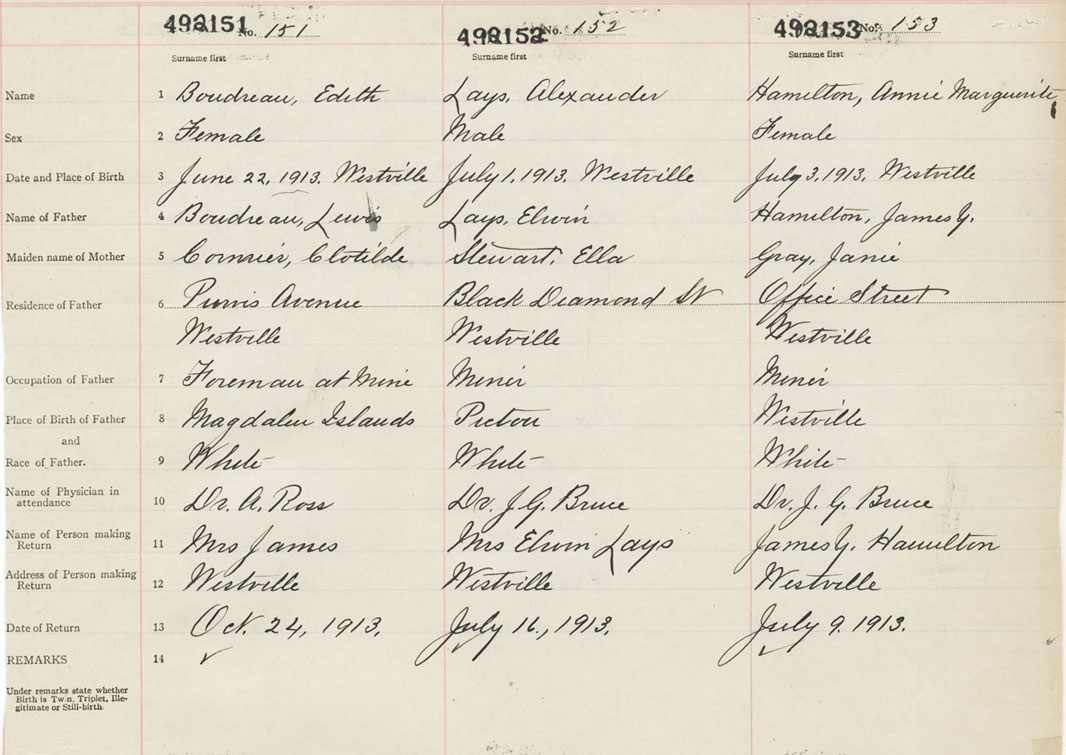 492151 No. 151 492152 No. 152 492153 No. 153
Surname first Surname first Surname first
Name 1 Boudreau, Edith Lays, Alexander Hamilton, Annie Marguerite
Sex 2 Female Male Female
Date and Place of Birth 3 June 22, 1913. Westville July 1, 1913. Westville July 3, 1913, Westville
Name of Father 4 Boudreau, Lewis Lays, Elwin Hamilton, James Y.
Maiden name of Mother 5 Cormier, Clotilde Stewart, Ella Gray, Janie
Residence of Father 6 Purvis Avenue Black Diamond St Office Street
Westville Westville Westville
Occupation of Father 7 Foreman at Mine Miner Miner
Place of Birth of Father 8 Magdalen Islands Pictou Westville
and
Race of Father. 9 White White White
Name of Physician in
attendance 10 Dr. A. Ross Dr. J. G. Bruce Dr. J. G. Bruce
Name of Person making
Return 11 Mrs James Mrs Elwin Lays James Y. Hamilton
Address of Person making
Return 12 Westville Westville Westville
Date of Return 13 Oct. 24, 1913. July 16, 1913. July 9. 1913.
REMARKS 14
Under remarks state whether
Birth is Twin, Triplet, Ille-
gitimate or Still-birth.